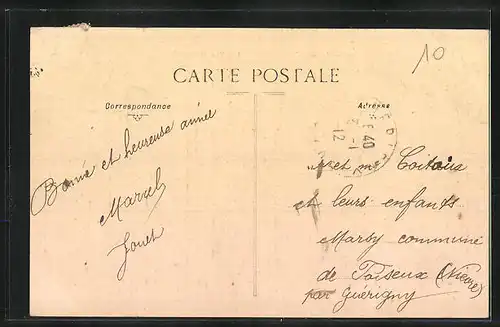 10
CARTE POSTALE
Correspondance
Adresse
Bonne et heureuse année
Marcel
Jouet
et me
et leurs enfants
Marby commune
de Poiseux (Nièvre)
par Guérigny